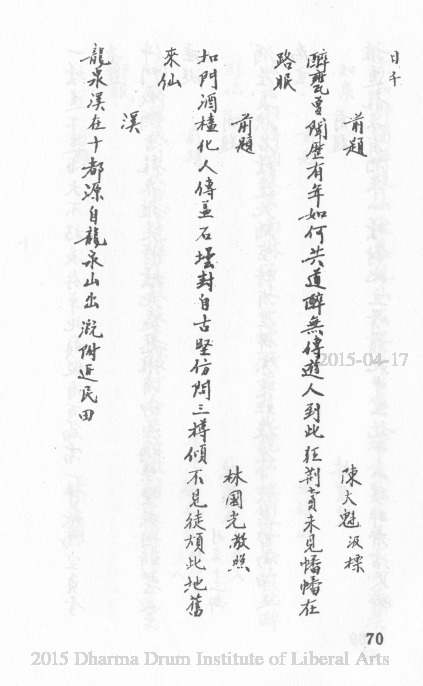 日千
前題 陳大魁汲標
醉甕曾聞歷有年如何共道醉無傳遊人到此狂荊賓未見幡幡在
路眠
前題 林國光啟照
扣門酒榼化人傳蓋石壜封自古堅仿問三樽傾不見徒頹此地舊
來仙
溪
龍泉溪在十都源自龍泉山出溉附近民田
2015-04-17
70
2015 Dharma Drum Institute of Liberal Arts